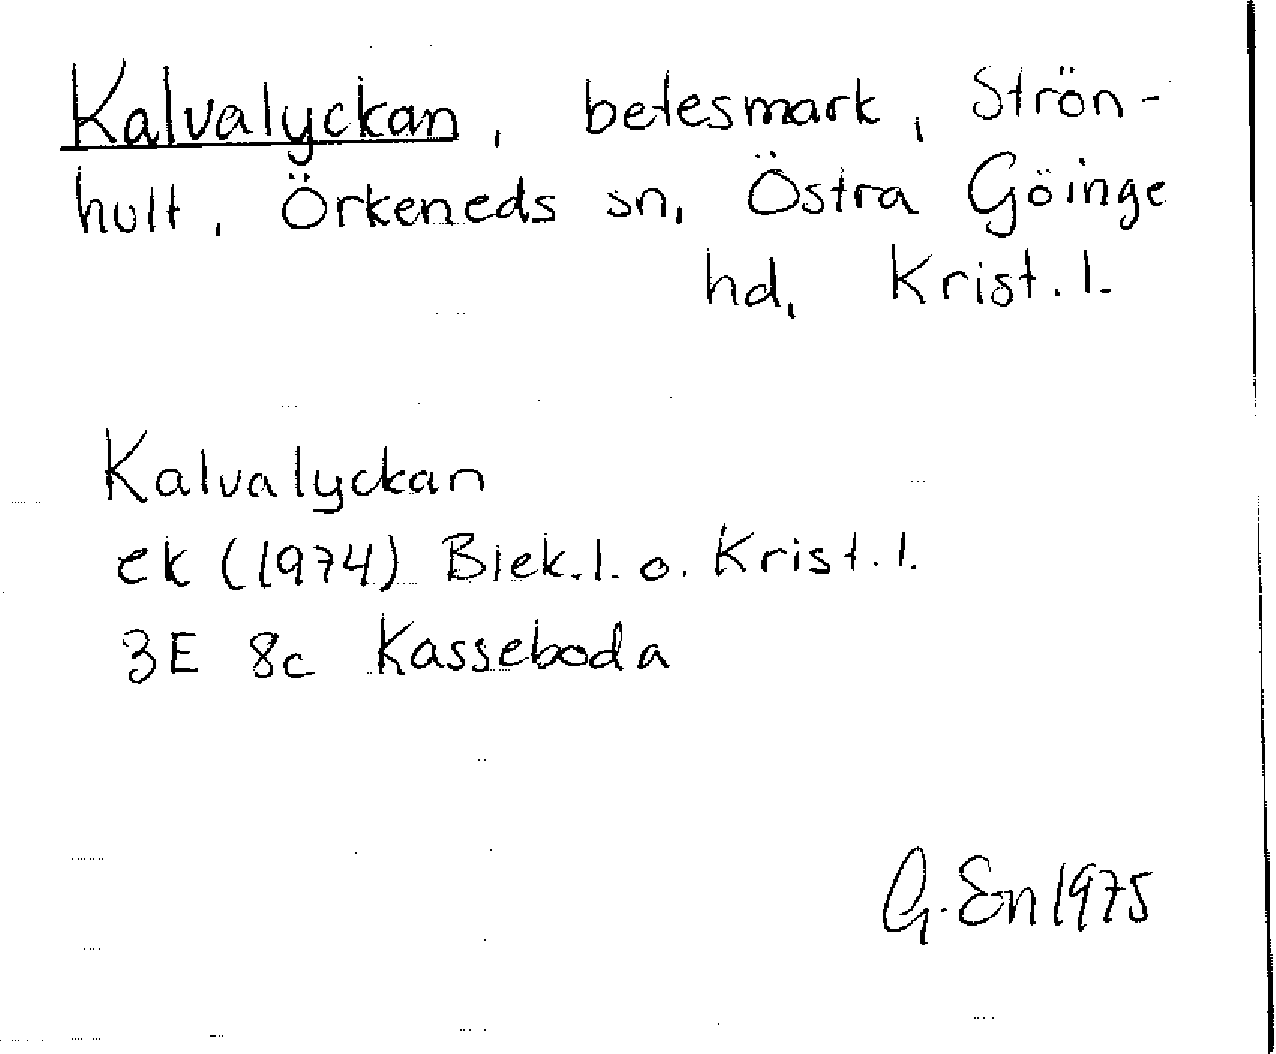 Kalvalyckan, betesmark, Strön-
hult, Örkeneds sn, Östra Göinge
hd, Krist. l.
Kalvalyckan
ek (1974) Blek. l. o. Krist. l.
3E 8c Kasseboda
G. En 1975